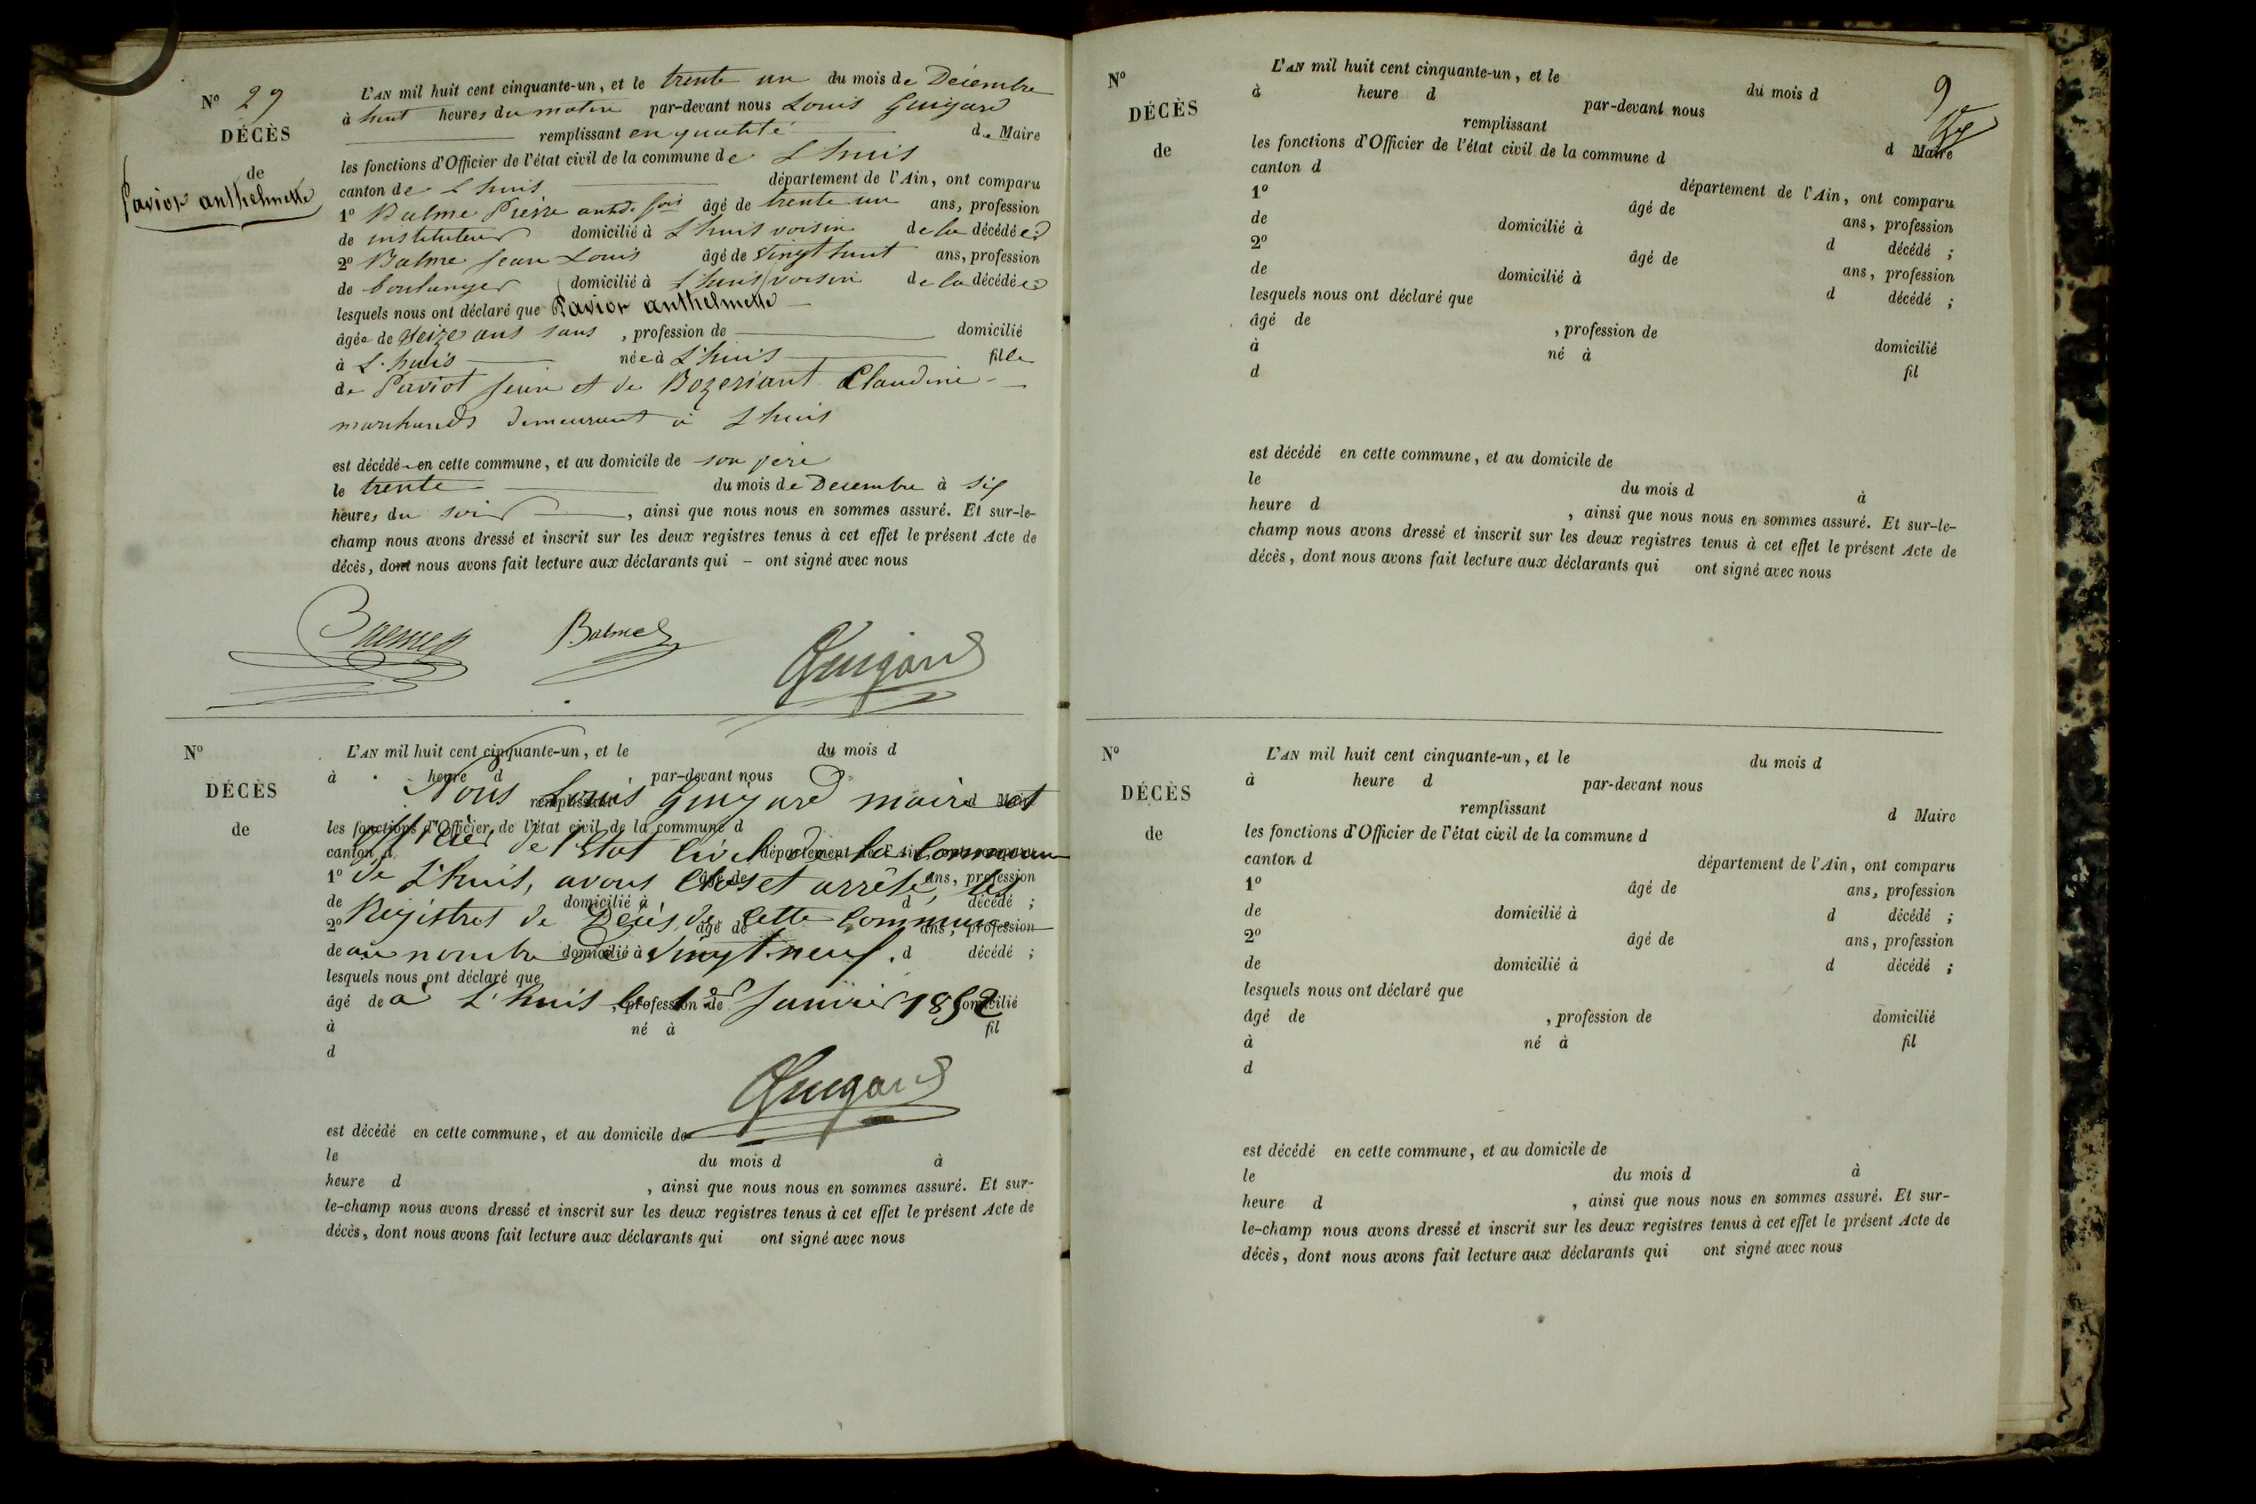 N° 29
DÉCÈS
de
Paviot anthelmette
L'AN mil huit cent cinquante-un, et le trente un du mois de Décembre
à huit heures du matin par-devant nous Louis Guigard
remplissant en qualité de Maire
les fonctions d'Officier de l'état civil de la commune de L'huis
canton de L'huis département de l'Ain, ont comparu
1° Balme Pierre âgé de trente un ans, profession
de instituteur domicilié à L'huis voisin de la décédée
2° Balme Jean Louis âgé de vingt huit ans, profession
de boulanger domicilié à L'huis voisin de la décédée
lesquels nous ont déclaré que Paviot anthelmette
âgée de seize ans sans , profession de domicilié
à L'huis née à L'huis fille
de Paviot Jean et de Bozeriant Claudine
marchands demeurant à L'huis
est décédé en cette commune, et au domicile de son père
le trente du mois de Decembre à six
heures du soir , ainsi que nous nous en sommes assuré. Et sur-le-
champ nous avons dressé et inscrit sur les deux registres tenus à cet effet le présent Acte de
décès, dont nous avons fait lecture aux déclarants qui – ont signé avec nous
Balme Balme Guigard
N°
DÉCÈS
de
L'AN mil huit cent cinquante-un, et le du mois d
à heure d par-devant nous
remplissant d Maire
les fonctions d'Officier de l'état civil de la commune d
canton d département de l'Ain, ont comparu
1° âgé de ans, profession
de domicilié à d décédé ;
2° âgé de ans, profession
de domicilié à d décédé ;
lesquels nous ont déclaré que
âgé de , profession de domicilié
à né à fil
d
Nous Louis Guigard maire et
Officier de l'Etat Civil de la Commune
de L'huis, avons Clos et arrêté, les
Régistres de Décès de Cette Commune
au nombre de vingt neuf.
à L'huis le 1er Janvier 1852
Guigard
est décédé en cette commune, et au domicile de
le du mois d à
heure d , ainsi que nous nous en sommes assuré. Et sur-
le-champ nous avons dressé et inscrit sur les deux registres tenus à cet effet le présent Acte de
décès, dont nous avons fait lecture aux déclarants qui ont signé avec nous
9
N°
DÉCÈS
de
L'AN mil huit cent cinquante-un, et le du mois d
à heure d par-devant nous
remplissant d Maire
les fonctions d'Officier de l'état civil de la commune d
canton d département de l'Ain, ont comparu
1° âgé de ans, profession
de domicilié à d décédé ;
2° âgé de ans, profession
de domicilié à d décédé ;
lesquels nous ont déclaré que
âgé de , profession de domicilié
à né à fil
d
est décédé en cette commune, et au domicile de
le du mois d à
heure d , ainsi que nous nous en sommes assuré. Et sur-le-
champ nous avons dressé et inscrit sur les deux registres tenus à cet effet le présent Acte de
décès, dont nous avons fait lecture aux déclarants qui ont signé avec nous
N°
DÉCÈS
de
L'AN mil huit cent cinquante-un, et le du mois d
à heure d par-devant nous
remplissant d Maire
les fonctions d'Officier de l'état civil de la commune d
canton d département de l'Ain, ont comparu
1° âgé de ans, profession
de domicilié à d décédé ;
2° âgé de ans, profession
de domicilié à d décédé ;
lesquels nous ont déclaré que
âgé de , profession de domicilié
à né à fil
d
est décédé en cette commune, et au domicile de
le du mois d à
heure d , ainsi que nous nous en sommes assuré. Et sur-
le-champ nous avons dressé et inscrit sur les deux registres tenus à cet effet le présent Acte de
décès, dont nous avons fait lecture aux déclarants qui ont signé avec nous